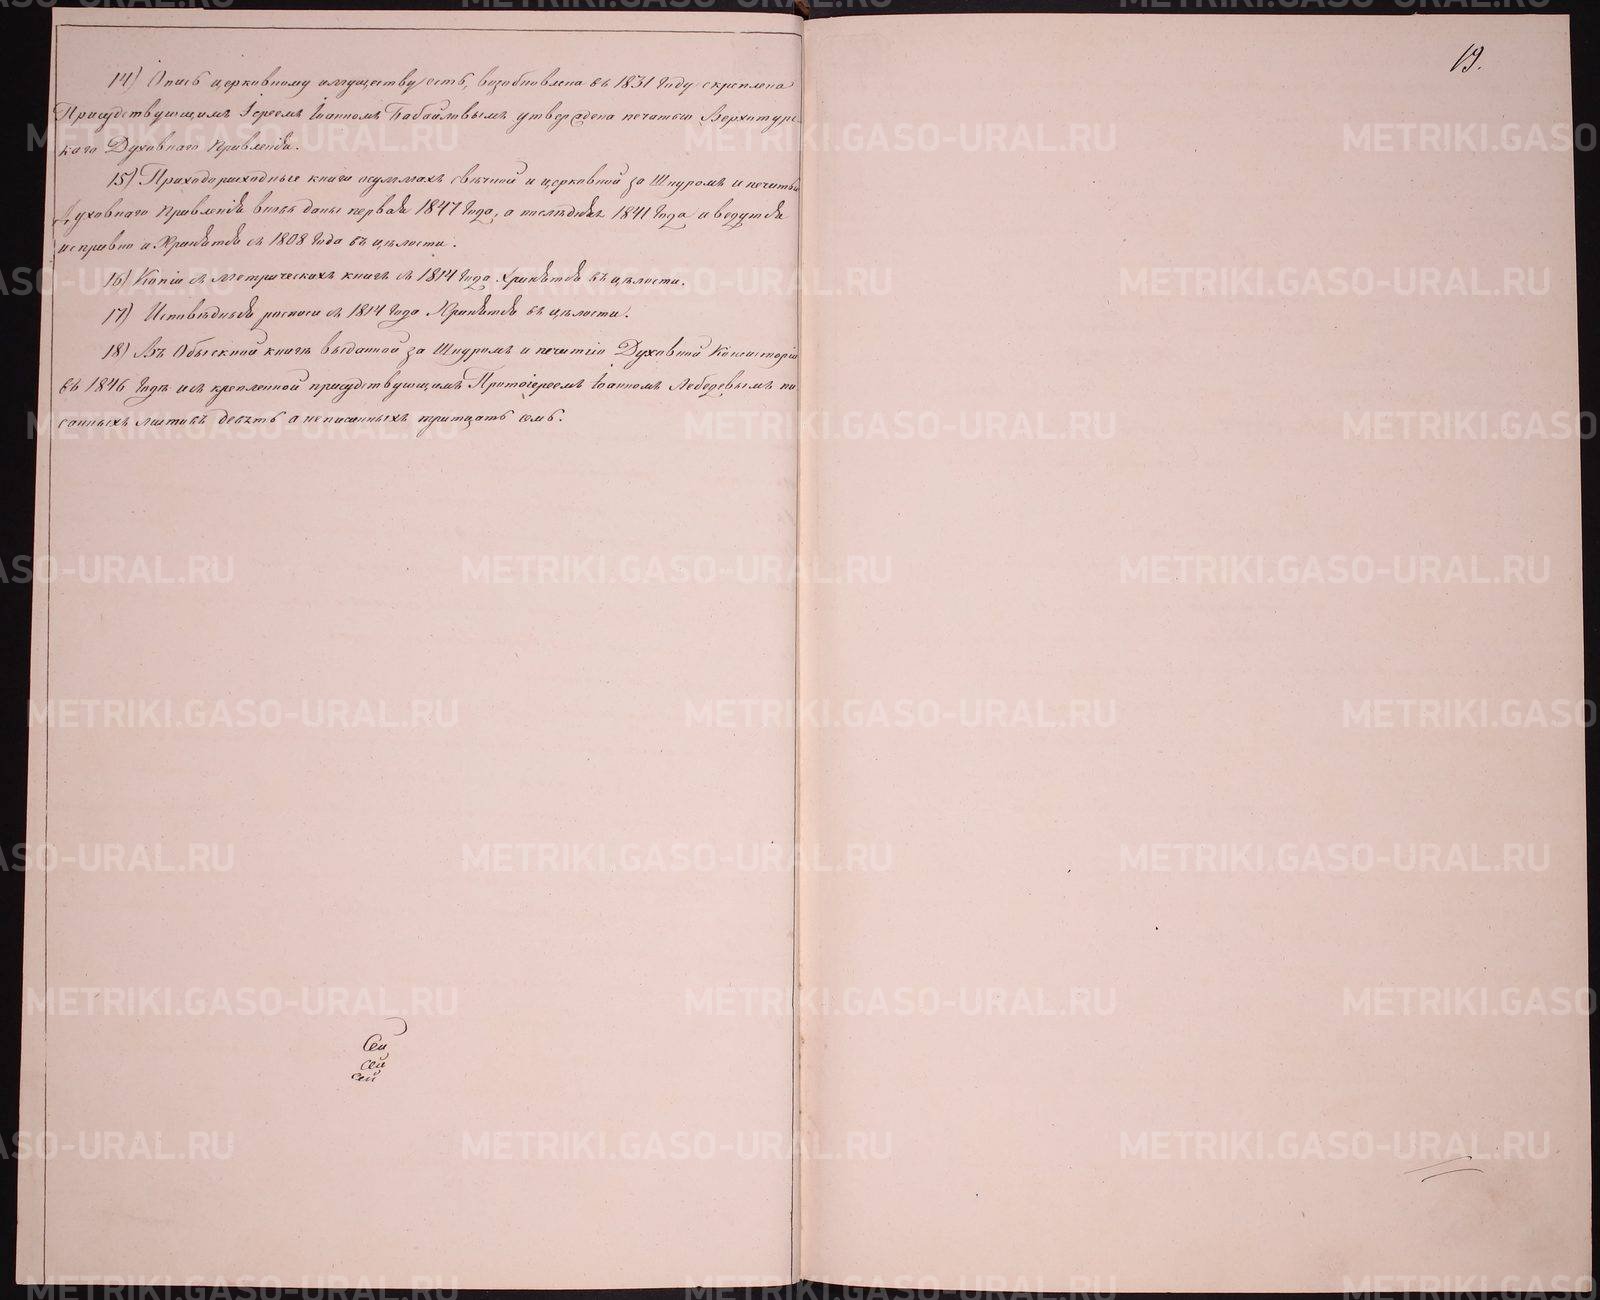 14) Опись церковному имуществу есть, возобновлена въ 1831 году скреплена
Присудствующимъ Iереемъ Iоанномъ Бабайловымъ утверждена печатью Верхотурс
каго Духовнаго Правленiя.
15) Приходорасходные книги осуммахъ свѣчной и церковной за Шнуромъ и печатью
Духовнаго Правленiя вновь даны первая 1847 года, а послѣдняя 1841 года и ведутся
исправно и Хранятся съ 1808 года въ цѣлости.
16) Копiи съ Метрическихъ книгъ съ 1814 года Хранятся въ цѣлости.
17) Исповѣдныя росписи съ 1814 года Хранятся въ цѣлости.
18) Въ Обыскной книгѣ выданной за Шнуромъ и печатiю Духовной Консисторiи
въ 1846 годѣ и скрепленной присудствующимъ Протоiереемъ Iоанномъ Лебедевымъ пи
санныхъ листовъ девять а неписанныхъ тритцать семь.
19.
METRIKI.GASO-URAL.RU